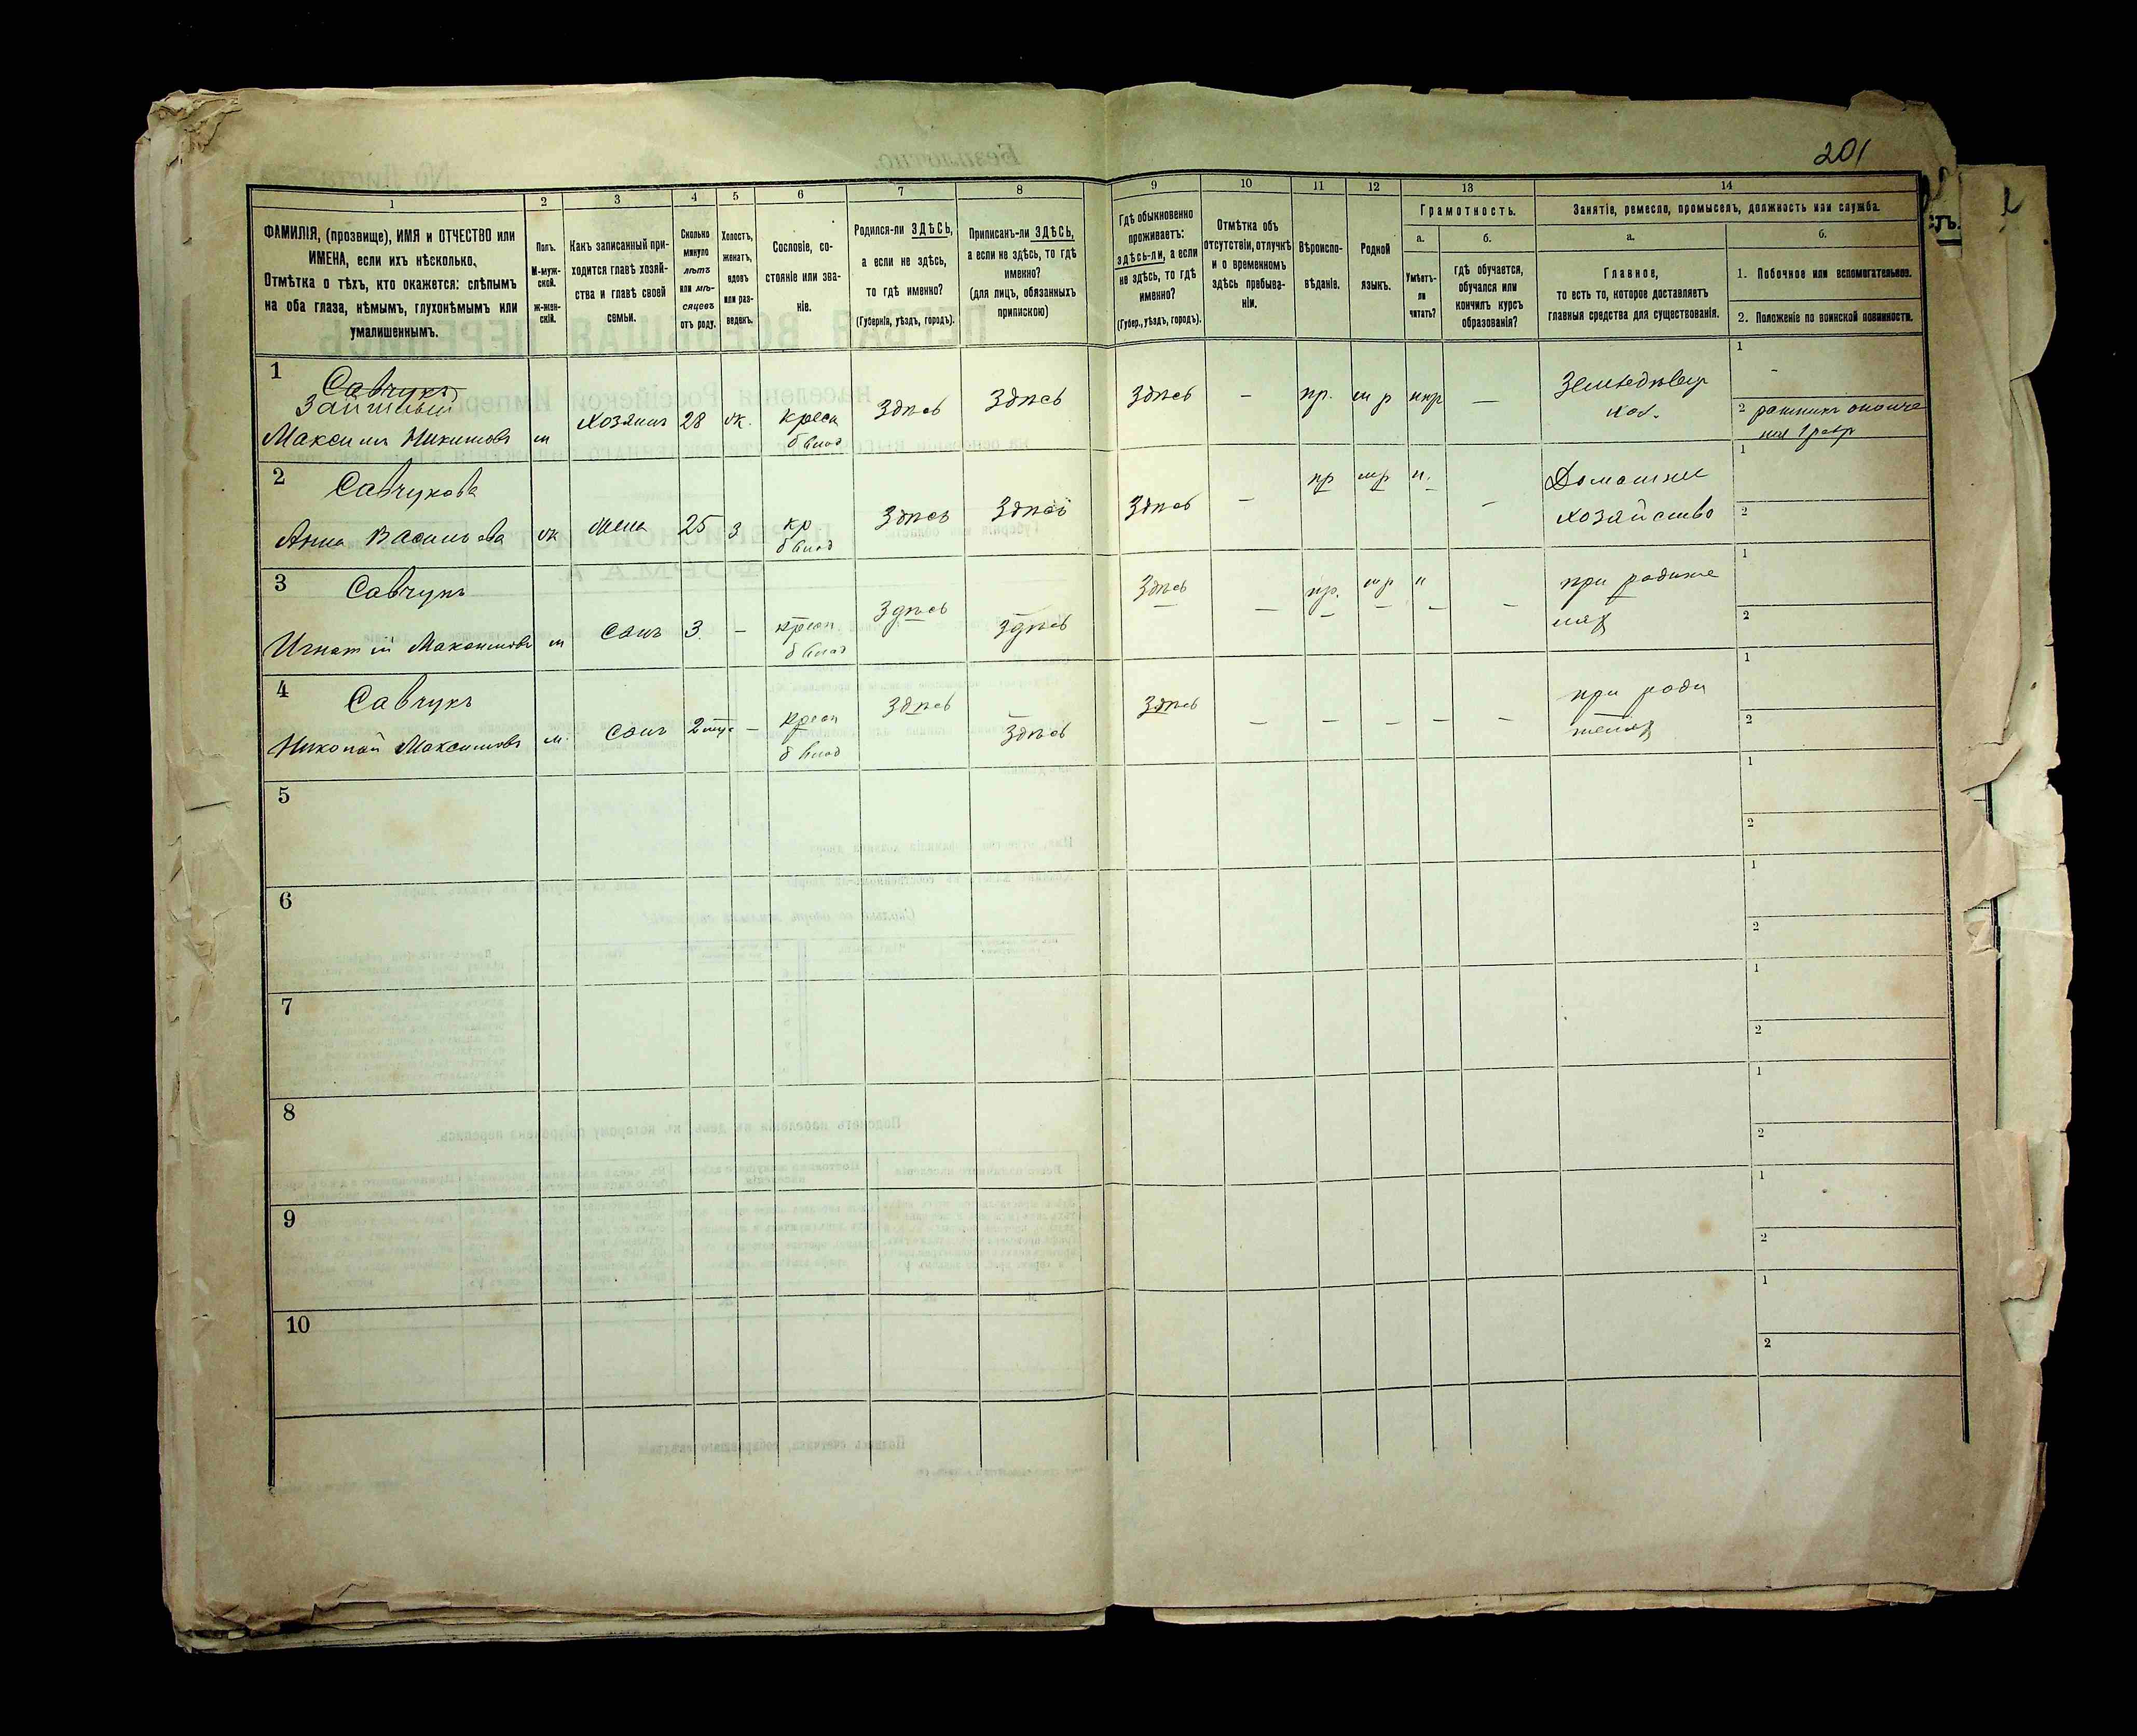 201
1
2
3
4
5
6
7
8
9
10
11
12
13
14
ФАМИЛІЯ, (прозвище), ИМЯ и ОТЧЕСТВО или
ИМЕНА, если ихъ нѣсколько.
Отмѣтка о тѣхъ, кто окажется: слѣпымъ
на оба глаза, нѣмымъ, глухонѣмымъ или
умалишеннымъ.
Полъ.
М-муж-
ской.
ж-жен-
скій.
Какъ записанный при-
ходится главѣ хозяй-
ства и главѣ своей
семьи.
Сколько
минуло
лѣтъ
или мѣ-
сяцевъ
отъ роду.
Холостъ,
женатъ,
вдовъ
или раз-
веденъ.
Сословіе, со-
стояніе или зва-
ніе.
Родился-ли ЗДѢСЬ,
а если не здѣсь,
то гдѣ именно?
(Губернія, уѣздъ, городъ).
Приписанъ-ли ЗДѢСЬ,
а если не здѣсь, то гдѣ
именно?
(для лицъ, обязанныхъ
припискою)
Гдѣ обыкновенно
проживаетъ:
здѣсь-ли, а если
не здѣсь, то гдѣ
именно?
(Губер., уѣздъ, городъ).
Отмѣтка объ
отсутствіи, отлучкѣ
и о временномъ
здѣсь пребыва-
ніи.
Вѣроиспо-
вѣданіе.
Родной
языкъ.
Грамотность.
а.
Умѣетъ-
ли
читать?
б.
гдѣ обучается,
обучался или
кончилъ курсъ
образованія?
Занятіе, ремесло, промыселъ, должность или служба.
а.
Главное,
то есть то, которое доставляетъ
главныя средства для существованія.
б.
1. Побочное или вспомогательное.
2. Положеніе по воинской повинности.
1
Савчукъ
Максимъ Никитовъ
м
Хозяинъ
28
ж.
крест
б влад
Здѣсь
Здѣсь
Здѣсь
–
пр.
м р
—
1
-
2 ратникъ ополче
нія 1 разр
2
Савчукова
Анна Васильева
ж
жена
25
з
кр
б влад
Здѣсь
Здѣсь
Здѣсь
–
пр
мр
н.
-
Домашнее
хозяйство
1
2
3
Савчукъ
Игнатій Максимовъ
м
сынъ
3.
–
крест
б влад
Здѣсь
Здѣсь
Здѣсь
–
пр.
мр
н
–
при родите
ляхъ
1
2
4
Савчукъ
Николай Максимовъ
м.
сынъ
–
крест
б влад
Здѣсь
Здѣсь
Здѣсь
–
–
–
–
–
при роди
теляхъ
1
2
5
1
2
6
1
2
7
1
2
8
1
2
9
1
2
10
1
2